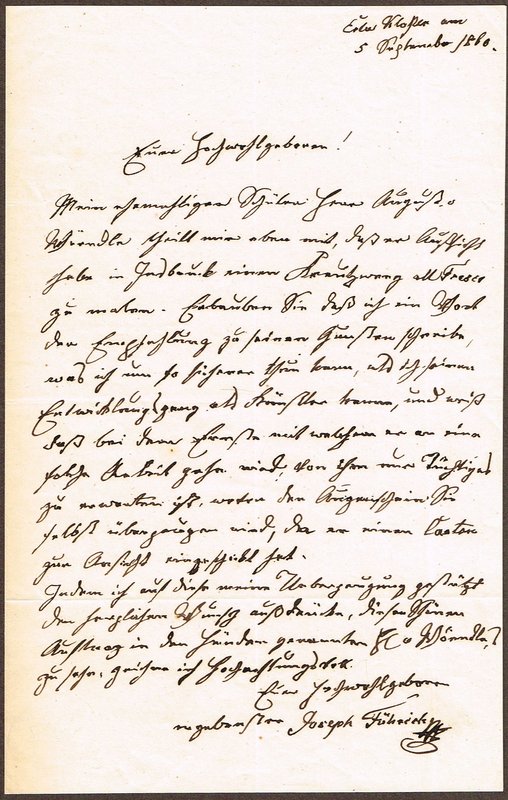 Kloster am
5 September 1860.
Euer Hochwohlgeboren!
Mein ehemahliger Schüler Herr August v
Wörndle theilt mir eben mit, daß er Aussicht
habe in Insbruck einen Kreutzweg all Fresco
zu malen. Erlauben Sie daß ich ein Wort
der Empfehlung zu seinen Gunsten schreibe,
was ich um so sicherer thun kann, als ich seinen
Entwicklungsgang als Künstler kenne, und weiß
daß bei dem Ernste mit welchem er an eine
solche Arbeit gehn wird, von ihm nur Tüchtiges
zu erwarten ist, wovon der Augenschein Sie
selbst überzeugen wird, da er einen Carton
zur Ansicht eingeschickt hat.
Indem ich auf diese meine Ueberzeugung gestützt
den herzlichen Wunsch ausdrücke, diesen schönen
Auftrag in den Händen genannten v Wörndle's
zu sehn, zeichne ich hochachtungsvoll
Euer Hochwohlgeboren
ergebenster Joseph Führich